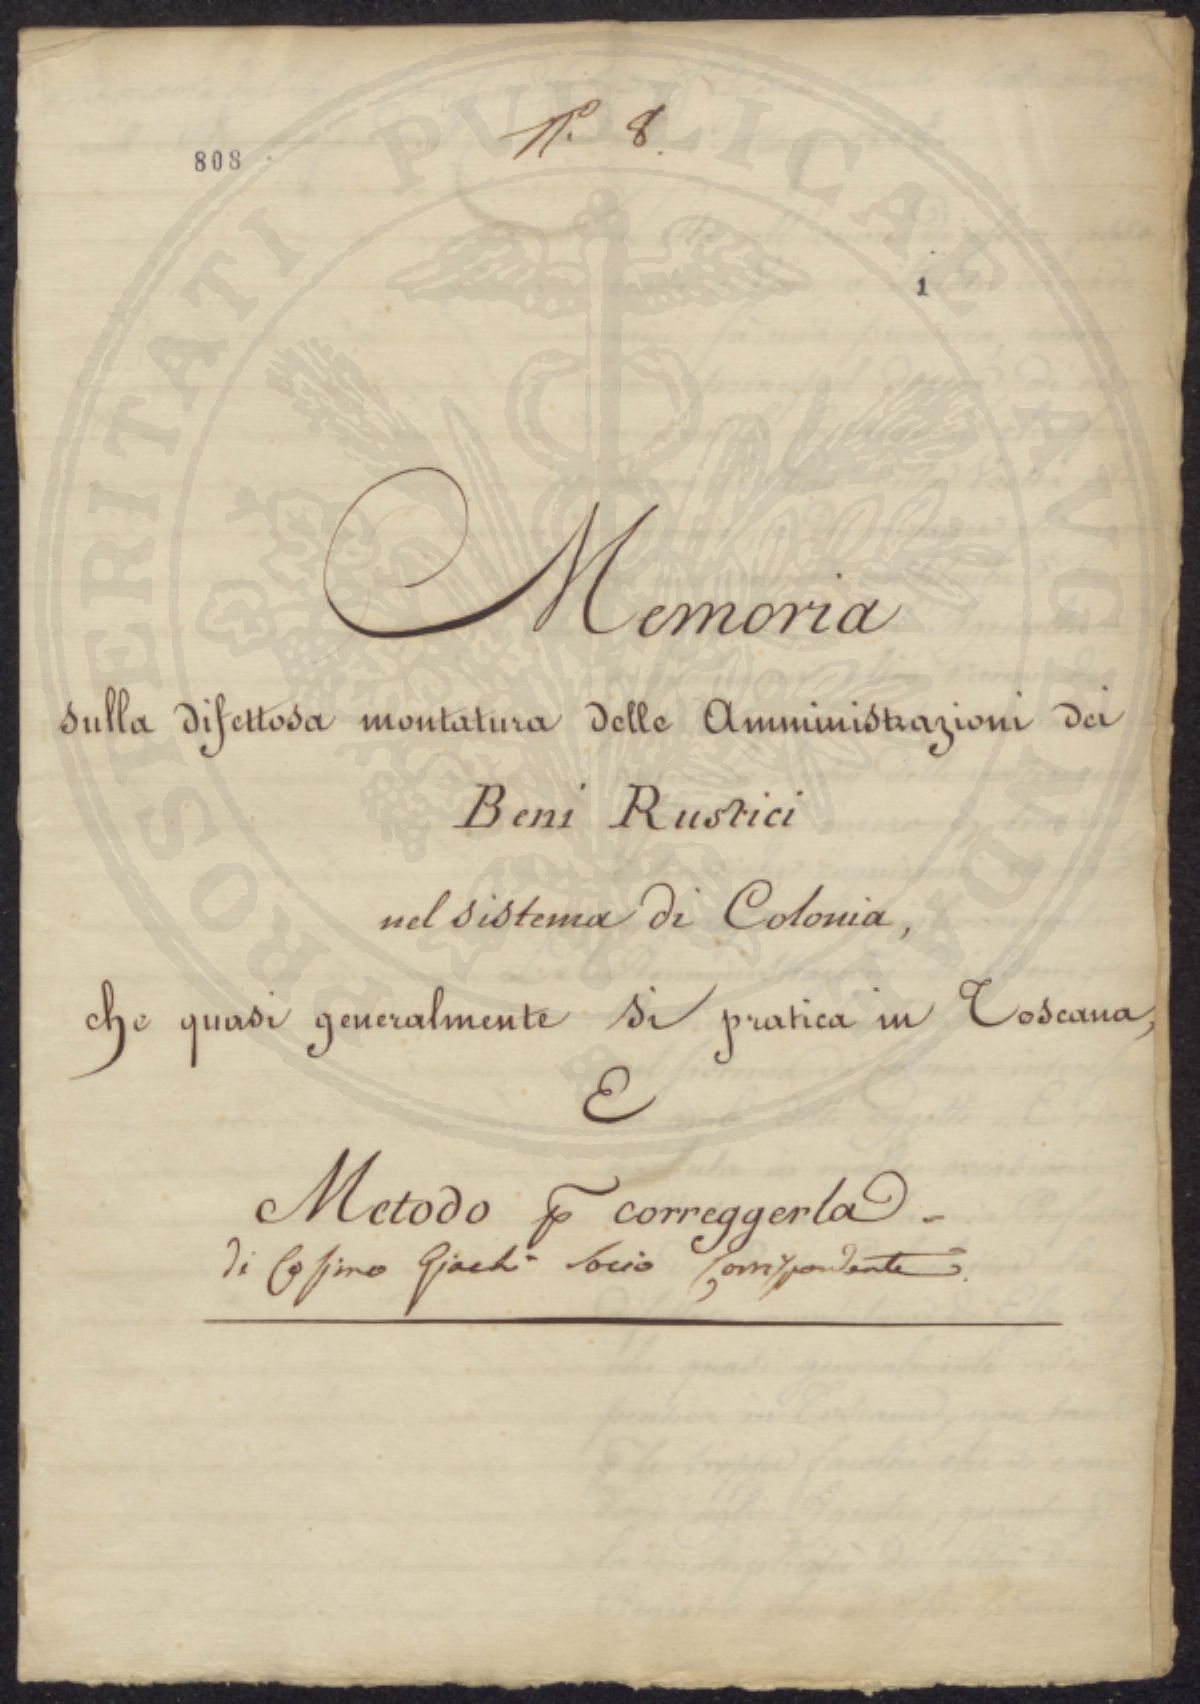 N. 8.
808
1
Memoria
sulla difettosa montatura delle Amministrazioni dei
Beni Rustici
nel sistema di Colonia,
che quasi generalmente si pratica in Toscana,
E
Metodo p correggerla -
di Cosimo Giachi Socio Corrispondente.
PROSPERITATI PUBLICAE AUGENDAE